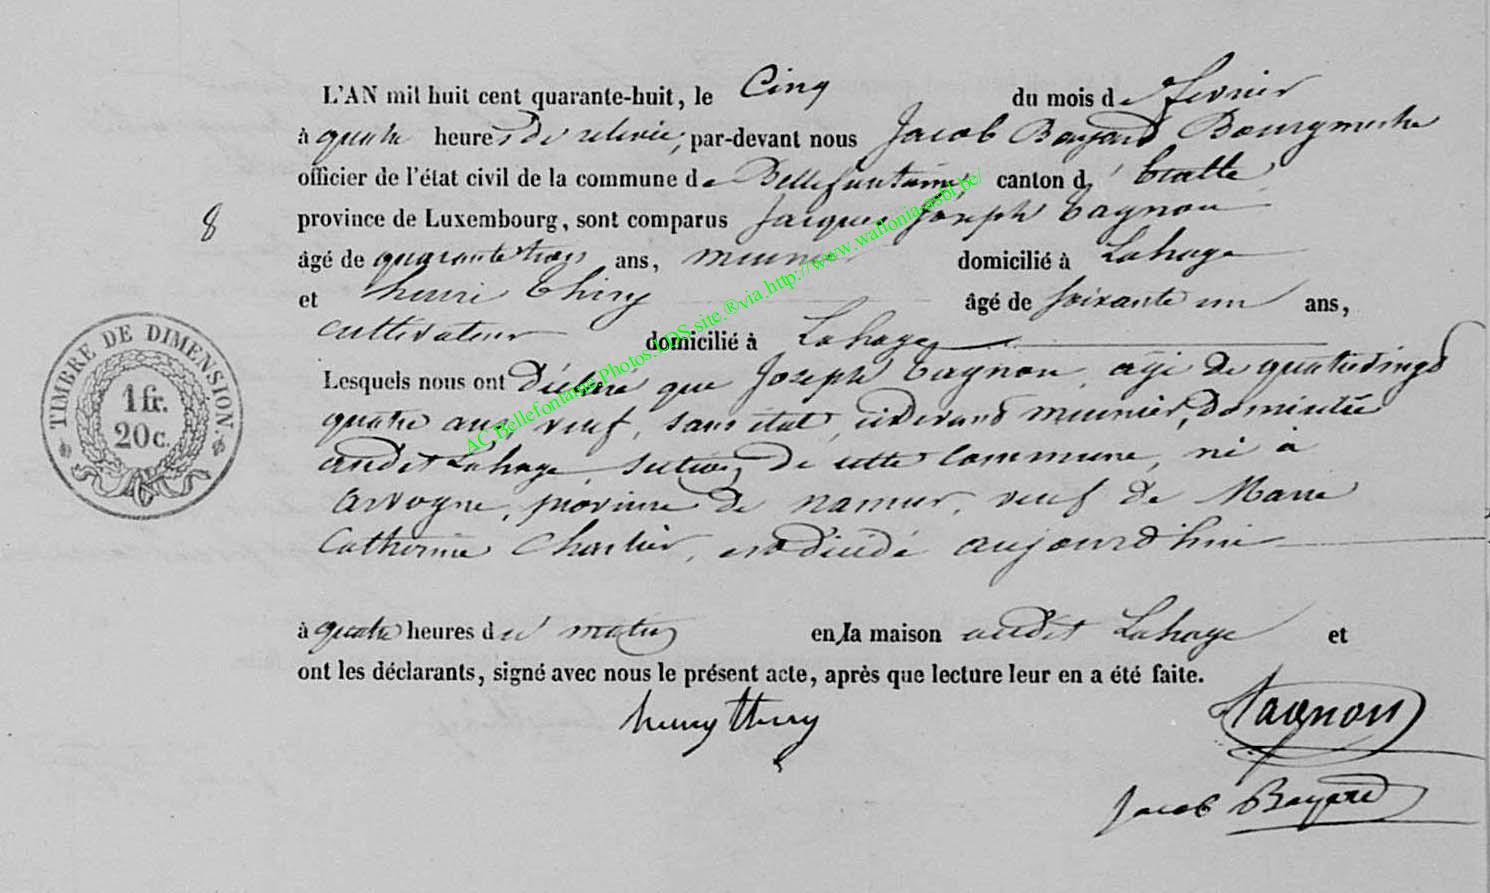 L'AN mil huit cent quarante-huit, le Cinq du mois de fevrier
à quatre heures de relevée, par-devant nous Jacob Bayard Bourgmestre
officier de l'état civil de la commune de Bellefontaine, canton d' Etalle
8
province de Luxembourg, sont comparus Jacques Joseph Tagnon
âgé de quarante trois ans, meunier domicilié à Lahage
et henri Thiry âgé de soixante un ans,
cultivateur domicilié à Lahage
Lesquels nous ont déclaré que Joseph Tagnon, agé de quatrevingt
quatre ans, veuf, sans état, cidevant meunier, domicilié
audit Lahage, section de cette Commune, né à
province de namur, veuf de Marie
Catherine Charlier, est décédé aujourd'hui
à quatre heures du matin en la maison audit Lahage et
ont les déclarants, signé avec nous le présent acte, après que lecture leur en a été faite.
henry thiry
Tagnon
Jacob Bayard
TIMBRE DE DIMENSION.
1 fr.
20 c.
AC Bellefontaine.Photos.LDS site.®via.http://www.wallonia-asbl.be/